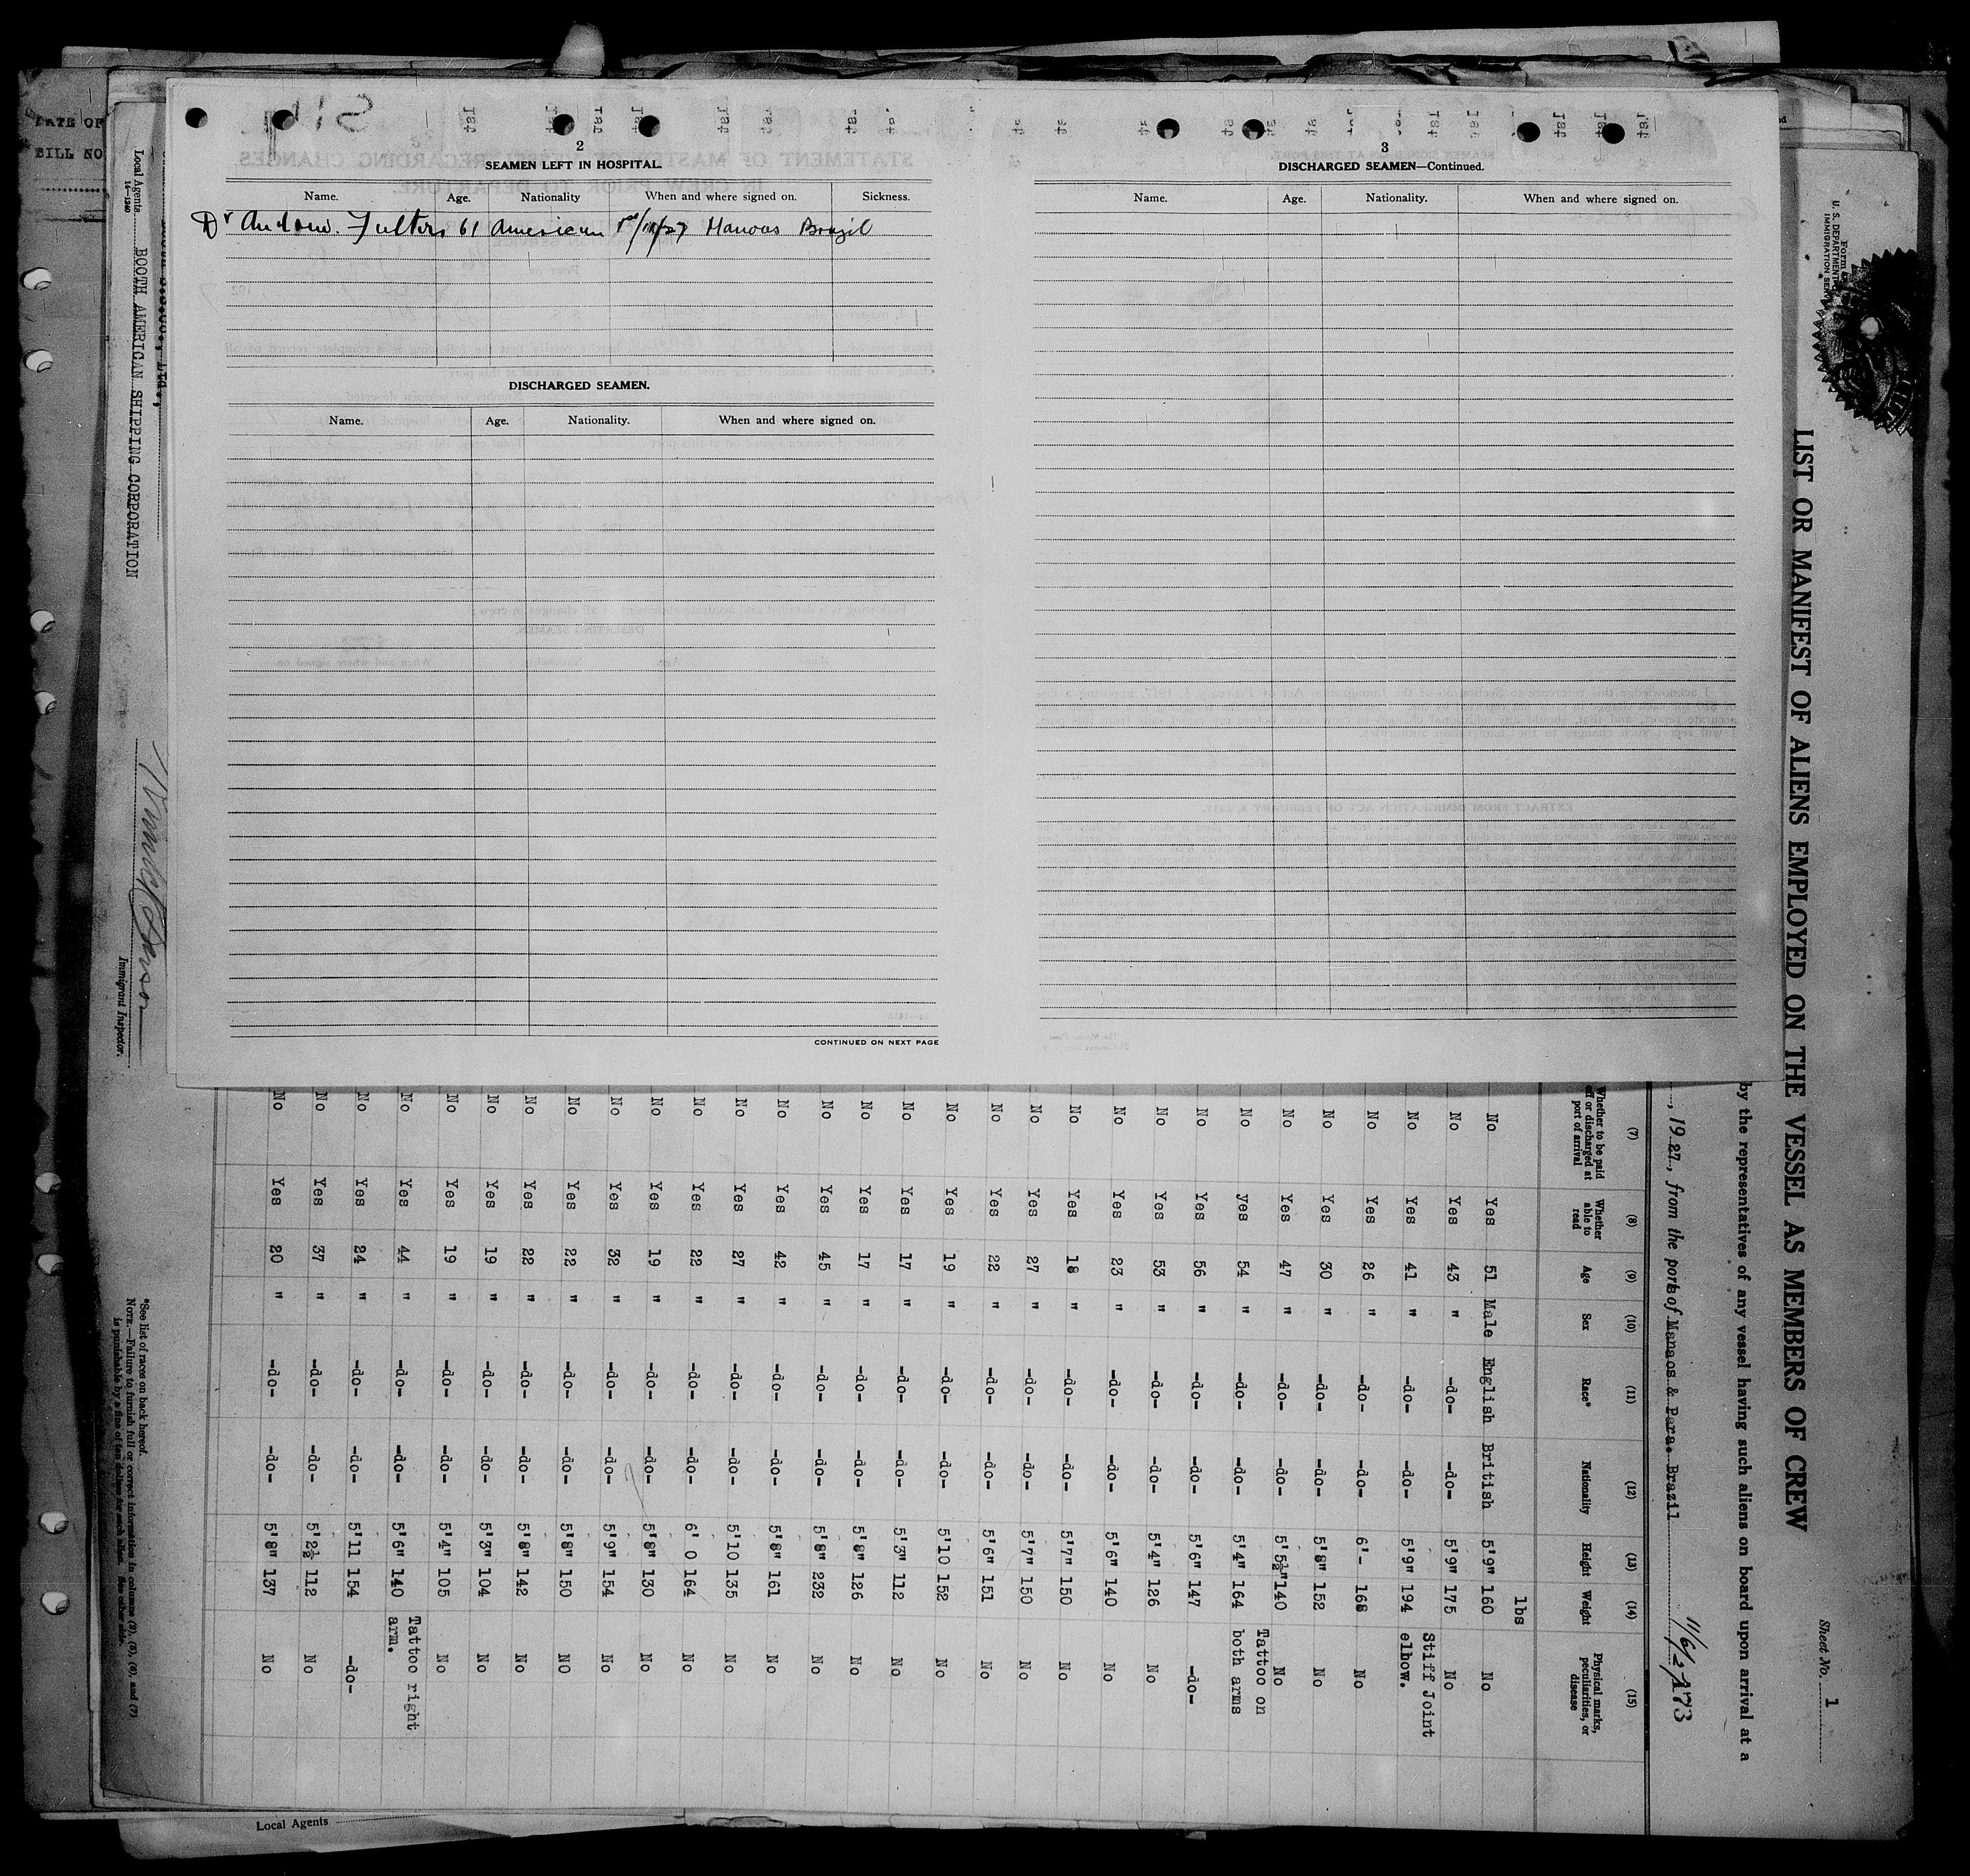 2
SEAMEN LEFT IN HOSPITAL.
Name. Age. Nationality When and where signed on. Sickness.
Dr Andrew. 61 American /27 Manaos Brazil
DISCHARGED SEAMEN.
Name. Age. Nationality. When and where signed on.
CONTINUED ON NEXT PAGE
3
DISCHARGED SEAMEN—Continued.
Name. Age. Nationality. When and where signed on.
DATE OF
BILL NO
Local Agents
14—1240
BOOTH AMERICAN SHIPPING CORPORATION
Immigrant Inspector.
Form
U. S. DEPARTMENT
IMMIGRATION SERV
Sheet No. 1
LIST OR MANIFEST OF ALIENS EMPLOYED ON THE VESSEL AS MEMBERS OF CREW
by the representatives of any vessel having such aliens on board upon arrival at a
, 1927, from the ports of Manaos & Para. Brazil
(7) (8) (9) (10) (11) (12) (13) (14) (15)
Whether to be paid off or discharged at port of arrival Whether able to read Age Sex Race* Nationality Height Weight Physical marks, peculiarities, or disease
lbs
No Yes 51 Male English British 5'9" 160 No
No Yes 43 " -do- -do- 5'9" 175 No
No Yes 41 " -do- -do- 5'9" 194 Stiff Joint elbow.
No Yes 26 " -do- -do- 6'- 168 No
No Yes 30 " -do- -do- 5'8" 152 No
No Yes 47 " -do- -do- 5'5½" 140 No
No yes 54 " -do- -do- 5'4" 164 Tattoo on both arms
No Yes 56 " -do- -do- 5'6" 147 -do-
No Yes 53 " -do- -do- 5'4" 126 No
No Yes 23 " -do- -do- 5'6" 140 No
No Yes 18 " -do- -do- 5'7" 150 No
No Yes 27 " -do- -do- 5'7" 150 No
No Yes 22 " -do- -do- 5'6" 151 No
No Yes 19 " -do- -do- 5'10 152 No
No Yes 17 " -do- -do- 5'3" 112 No
No Yes 17 " -do- -do- 5'8" 126 No
No Yes 45 " -do- -do- 5'8" 232 No
No Yes 42 " -do- -do- 5'8" 161 No
No Yes 27 " -do- -do- 5'10 135 No
No Yes 22 " -do- -do- 6' 0 164 No
No Yes 19 " -do- -do- 5'8" 130 No
No Yes 32 " -do- -do- 5'9" 154 No
No Yes 22 " -do- -do- 5'8" 150 NO
No Yes 22 " -do- -do- 5'8" 142 No
No Yes 19 " -do- -do- 5'3" 104 No
No Yes 19 " -do- -do- 5'4" 105 No
No Yes 44 " -do- -do- 5'6" 140 Tattoo right arm.
No Yes 24 " -do- -do- 5'11 154 -do-
No Yes 37 " -do- -do- 5'2½ 112 No
No Yes 20 " -do- -do- 5'8" 137 No
*See list of races on back hereof.
NOTE.—Failure to furnish full or correct information in columns (2), (5), (6), and (7)
is punishable by a fine of ten dollars for each alien. See other side.
Local Agents